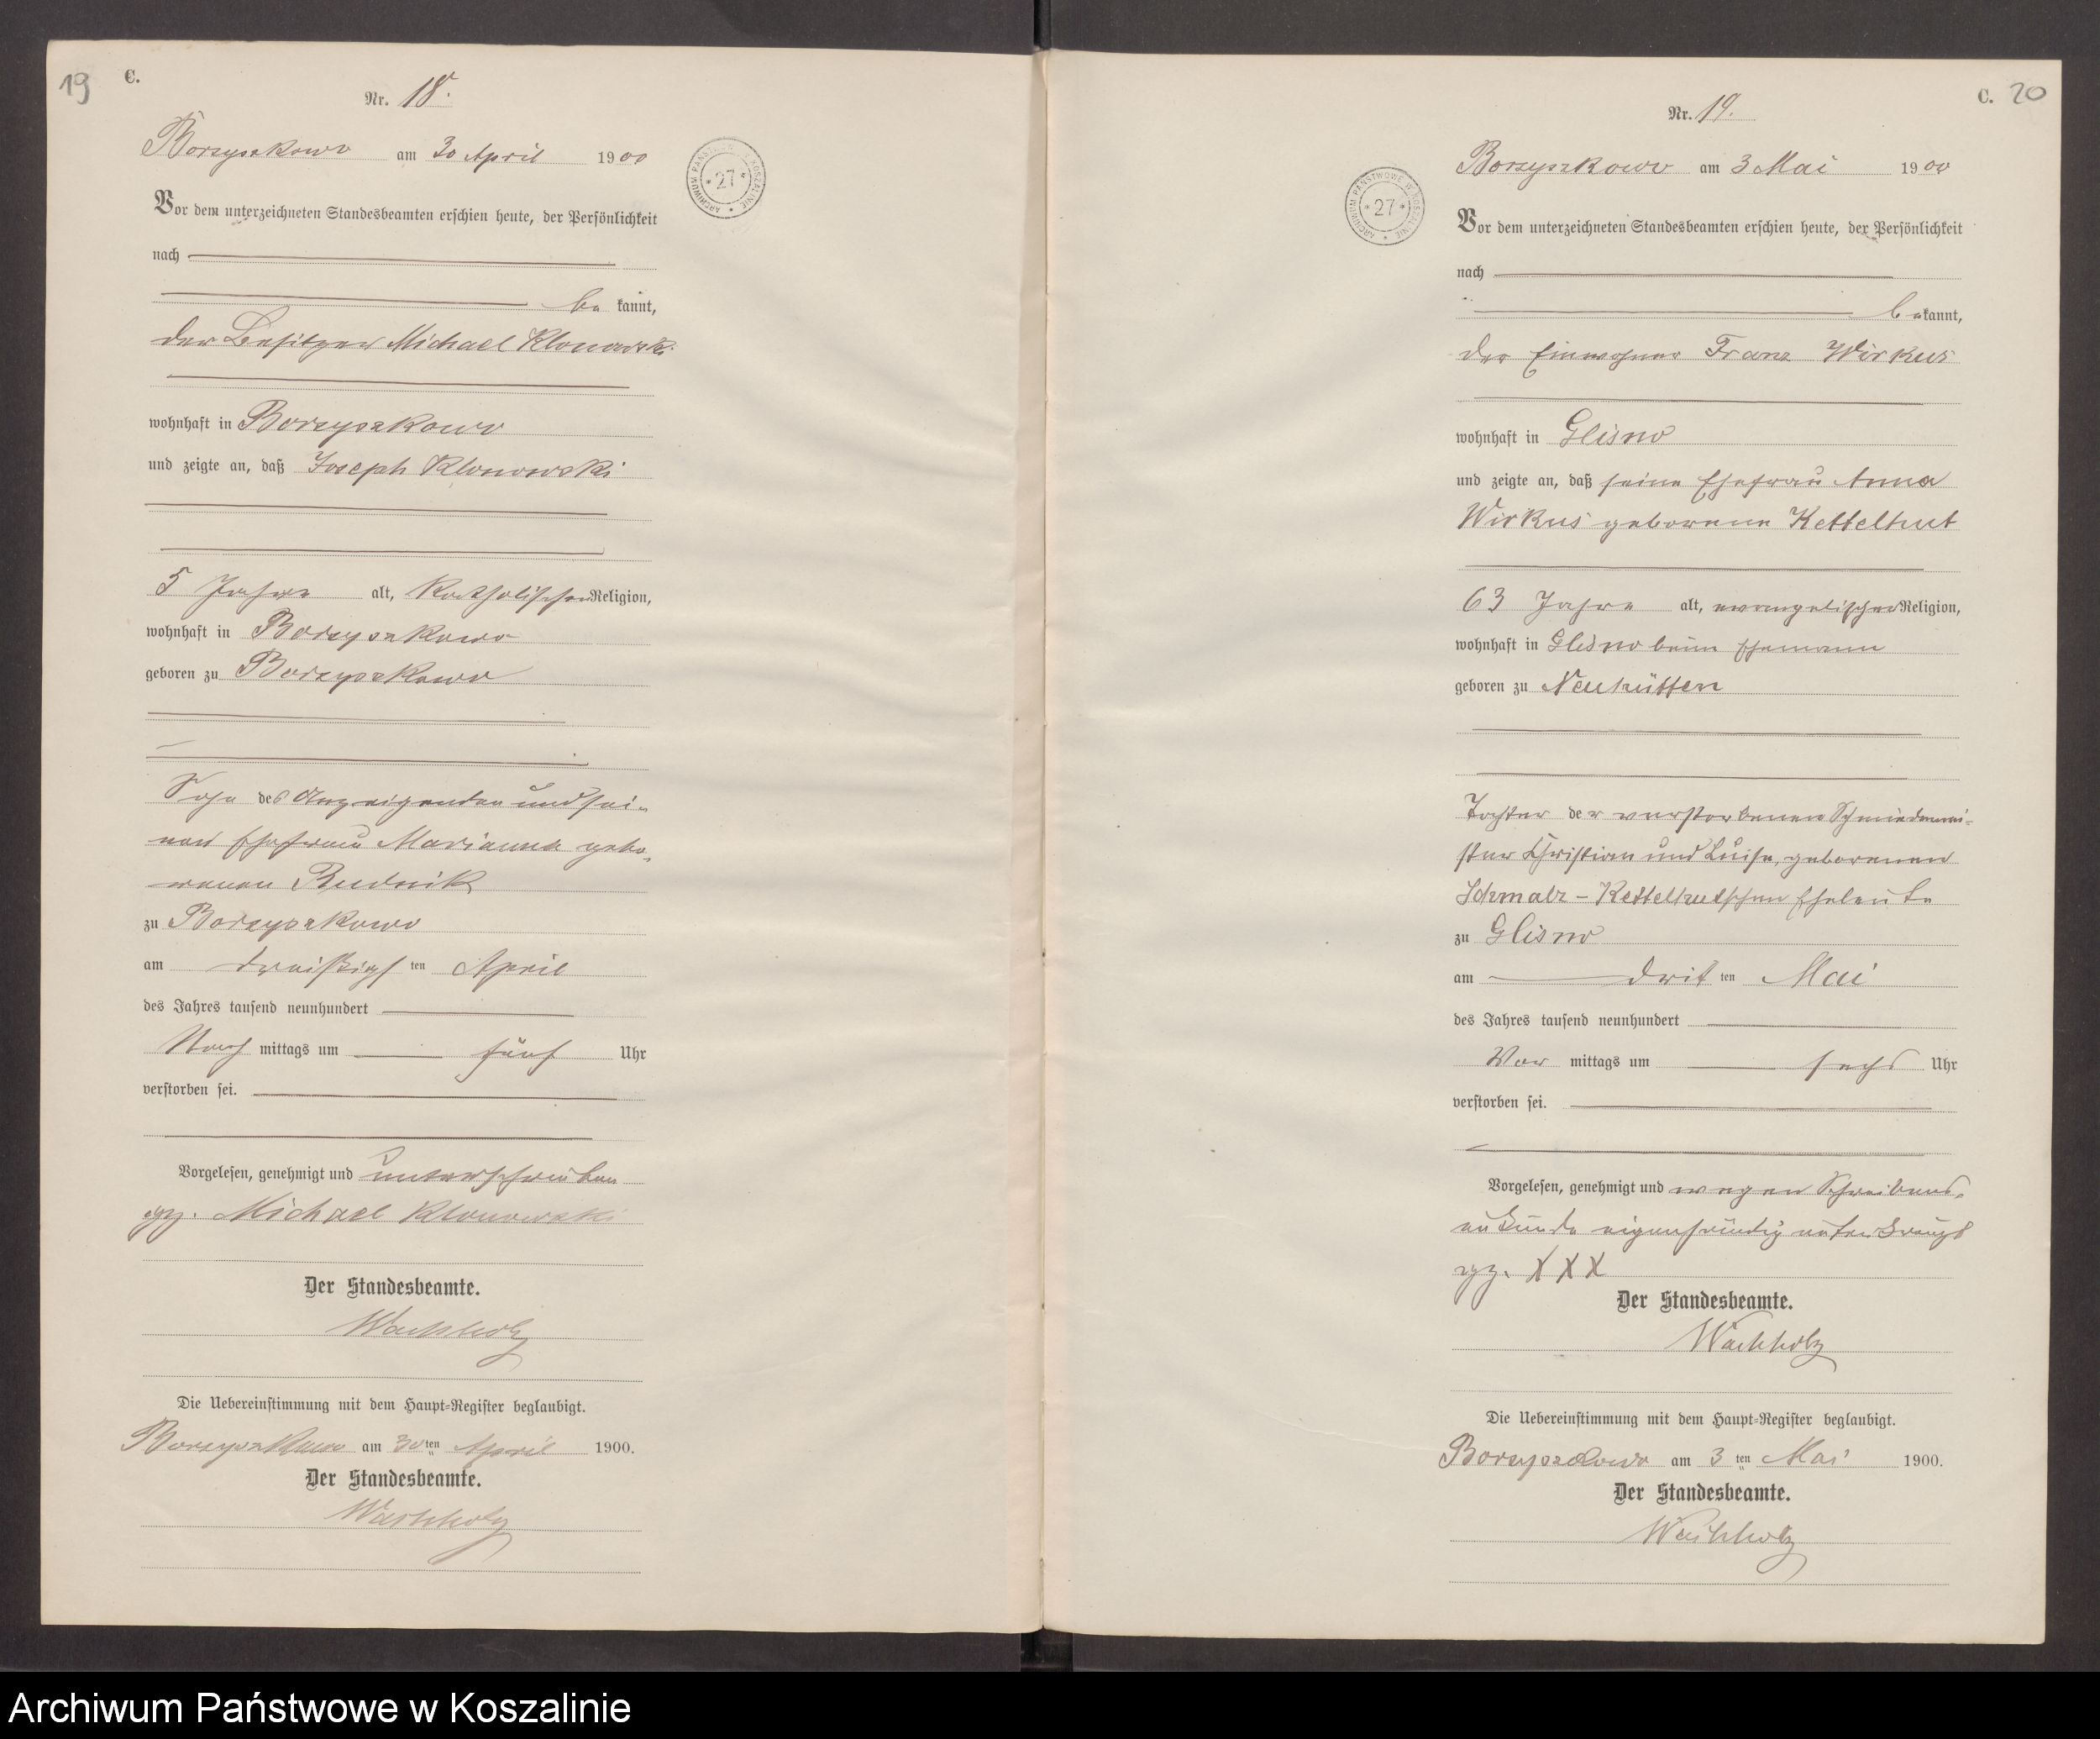 19
C.
Nr. 18.
Borzyszkowo am 30 April 1900
Vor dem unterzeichneten Standesbeamten erschien heute, der Persönlichkeit
nach
be kannt,
der Besitzer Michael Klonowski
wohnhaft in Borzyszkowo
und zeigte an, daß Joseph Klonowski
5 Jahre alt, katholischer Religion,
wohnhaft in Borzyszkowo
geboren zu Borzyszkowo
Sohn des Anzeigenden und sei-
ner Ehefrau Marianna gebo-
renen Rudnik
zu Borzyszkowo
am dreißigs ten April
des Jahres tausend neunhundert
Nach mittags um fünf Uhr
verstorben sei.
Vorgelesen, genehmigt und unterschrieben
gz. Michael Klonowski
Der Standesbeamte.
Wachholz
Die Uebereinstimmung mit dem Haupt-Register beglaubigt.
Borzyszkowo am 30 ten April 1900.
Der Standesbeamte.
Wachholz
ARCHIWUM PAŃSTWOWE W KOSZALINIE
* 27 *
C. 20
Nr. 19.
Borzyszkowo am 3 Mai 1900
Vor dem unterzeichneten Standesbeamten erschien heute, der Persönlichkeit
nach
be kannt,
der Einwohner Franz Wirkus
wohnhaft in Glisno
und zeigte an, daß seine Ehefrau Anna
Wirkus geborene Kettelhut
63 Jahre alt, evangelischer Religion,
wohnhaft in Glisno beim Ehemann
geboren zu Neuhütten
Tochter der verstorbenen Schmiedemei-
ster Christian und Luise, geborenen
Schmalz - Kettelhutschen Eheleute
zu Glisno
am drit ten Mai
des Jahres tausend neunhundert
Vor mittags um sechs Uhr
verstorben sei.
Vorgelesen, genehmigt und wegen Schreibens-
unkunde eigenhändig unterkreuzt
gz. XXX
Der Standesbeamte.
Wachholz
Die Uebereinstimmung mit dem Haupt-Register beglaubigt.
Borzyszkowo am 3 ten Mai 1900.
Der Standesbeamte.
Wachholz
ARCHIWUM PAŃSTWOWE W KOSZALINIE
* 27 *
Archiwum Państwowe w Koszalinie